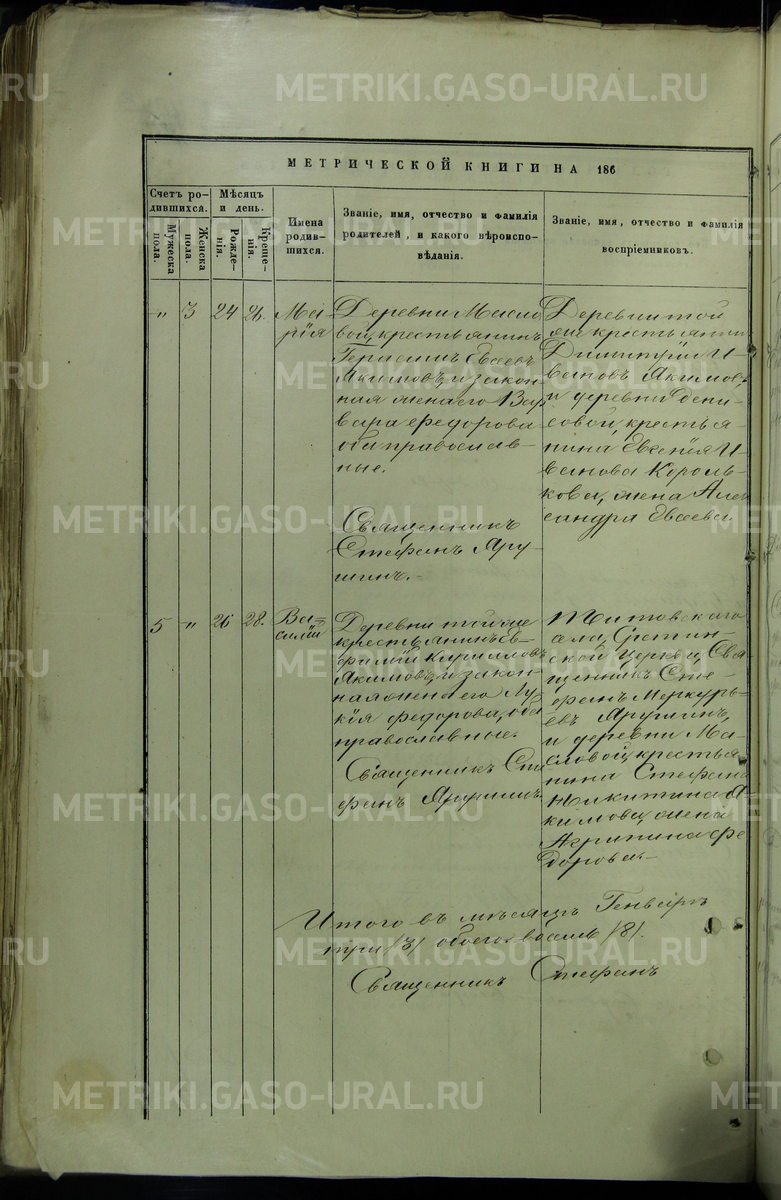 МЕТРИЧЕСКОЙ КНИГИ НА 186
Счетъ ро-
дившихся.
Мужеска
пола.
Женска
пола.
Мѣсяцъ
и день.
Рожде-
нія.
Креще-
нія.
Имена
родив-
шихся.
Званіе, имя, отчество и фамилія
родителей, и какого вѣроиспо-
вѣданія.
Званіе, имя, отчество и фамилія
воспріемниковъ.
" 3 24 26.
Ма-
рія
Деревни Масло
вой, крестьянинъ
Герасимъ Евсеевъ
Акимовъ, и закон
ная жена его Вар
вара Федорова
оба православ-
ные.
Священникъ
Стефанъ Яру-
шинъ.-
Деревни той
же крестьянин
Димитрій И-
вановъ Акимов,
и деревни Дени-
совой, крестья-
нина, Евсенія И-
ванова Король-
кова, жена Алек
сандра Евсеева.
5 " 26 28.
Ва-
силій
Деревни той же
крестьянинъ Е-
фимій Кирилловъ
Акимовъ, и закон-
ная жена его Лу-
кія Федорова, оба
православные.
Священникъ Сте
фанъ Ярушинъ.
Титовскаго
села, Сретин-
ской церкви, Свя-
щенникъ Сте-
фанъ Меркурь-
евъ Ярушинъ,
и деревни Ма-
словой, крестья-
нина Стефана
Никитина А-
кимова, жена
Агрипина Фе
дорова.-
Итого въ мѣсяцѣ Генварѣ
три /3/ обоего восемь /8/.
Священникъ Стефанъ
METRIKI.GASO-URAL.RU